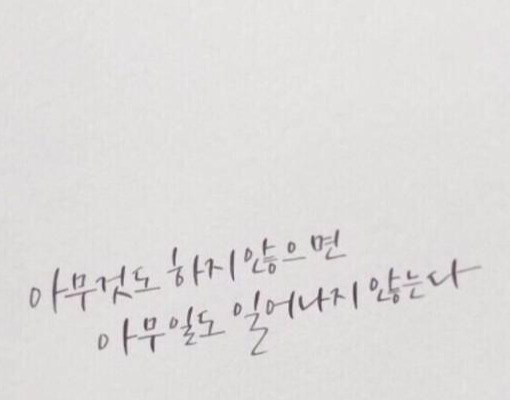 아무것도 하지 않으면
아무일도 일어나지 않는다